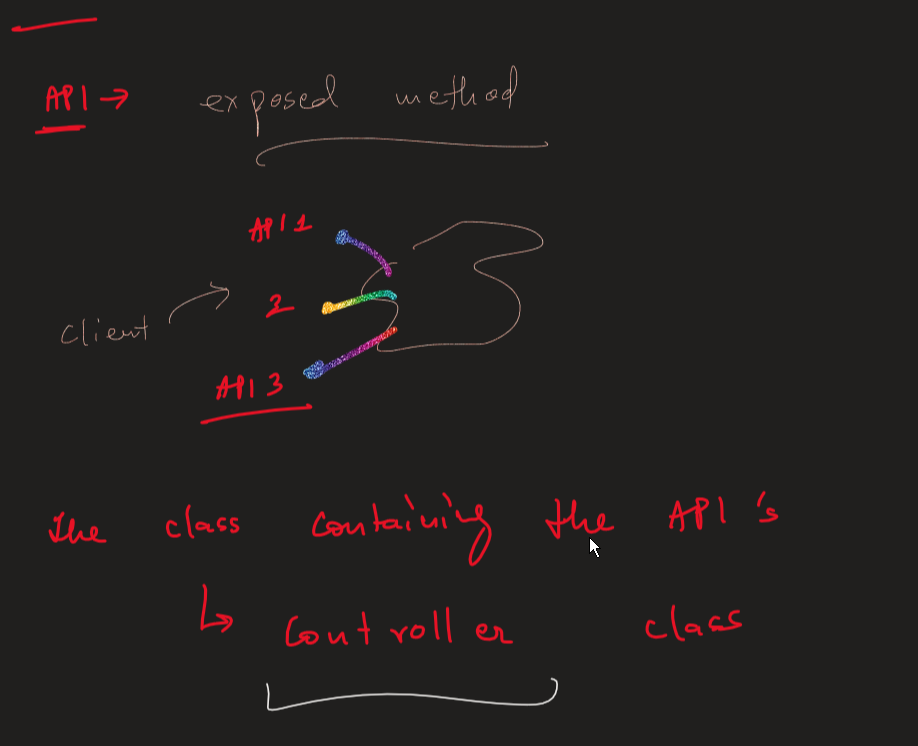 API → exposed method
API 1
2
client
API 3
The class containing the API's
↳ Controller class